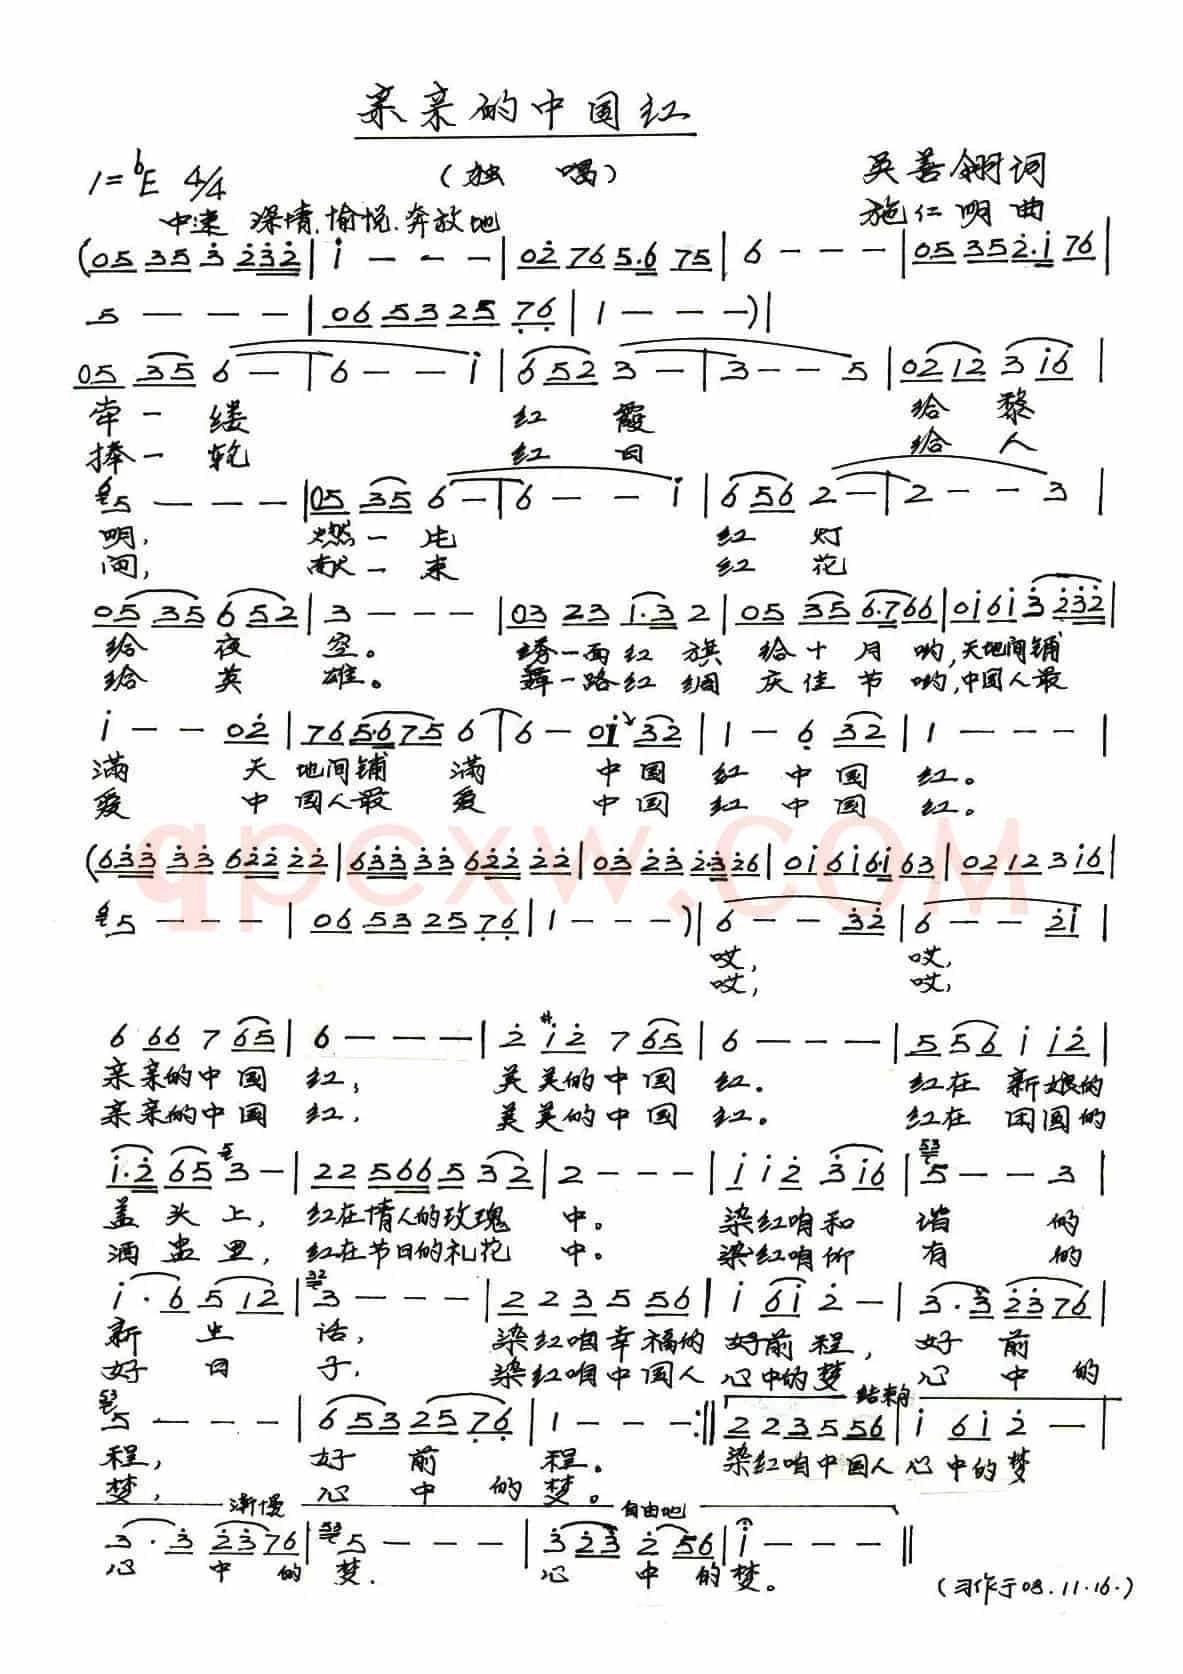 亲亲的中国红
（独 唱）
1=bE 4/4
吴善翎词
中速 深情.愉悦.奔放地
施仁明曲
(05 35 3 2 3 2 | i - - - | 02 76 5.6 75 | 6 - - - | 05 35 2.i 76 |
5 - - - | 06 53 25 76 | 1 - - - ) |
05 35 6 - | 6 - - i | 6 5 2 3 - | 3 - - 5 | 02 12 3 i6 |
牵一缕 红霞 给黎
捧一轮 红日 给人
5 - - - | 05 35 6 - | 6 - - i | 6 56 2 - | 2 - - 3 |
明, 燃一屯 红灯
间, 献一束 红花
05 35 6 52 | 3 - - - | 03 23 1.3 2 | 05 35 6.7 66 | 0i 6i 3 2 3 2 |
给夜空。 绣一面红旗给十月哟,天地间铺
给英雄。 舞一路红绸庆佳节哟,中国人最
i - - 02 | 76 5.6 75 6 | 6 - 0i 32 | 1 - 6 32 | 1 - - - |
满 天地间铺满 中国红中国红。
爱 中国人最爱 中国红中国红。
(6 3 3 3 3 6 2 2 2 2 | 6 3 3 3 3 6 2 2 2 2 | 03 23 2.3 26 | 0i 6i 6.i 63 | 02 12 3 i6 |
5 - - - | 06 53 25 76 | 1 - - - ) | 6 - - 32 | 6 - - 2i |
哎, 哎,
哎, 哎,
6 66 7 65 | 6 - - - | 2 #i2 7 65 | 6 - - - | 5 56 i i2 |
亲亲的中国红, 美美的中国红. 红在新娘的
亲亲的中国红. 美美的中国红. 红在团圆的
i.2 65 3 - | 22 5 66 5 32 | 2 - - - | i i2 3 i6 | 5 - - 3 |
盖头上,红在情人的玫瑰中。 染红咱和谐的
酒盅里,红在节日的礼花中. 染红咱仰有的
i . 6 5 12 | 3 - - - | 2 23 5 56 | i 6i 2 - | 3 . 3 23 76 |
新生话, 染红咱幸福的好前程,好前
好日子, 染红咱中国人心中的梦心中的
结束句
5 - - - | 6 53 25 76 | 1 - - - :‖ 2 23 5 56 | i 6i 2 - |
程, 好前程。 染红咱中国人心中的梦
梦, 心中的梦。
渐慢 自由地
3 . 3 23 76 | 5 - - - | 3 23 2 56 | i - - - ‖
心中的梦. 心中的梦。
(习作于08.11.16.)
qpcxw.COM